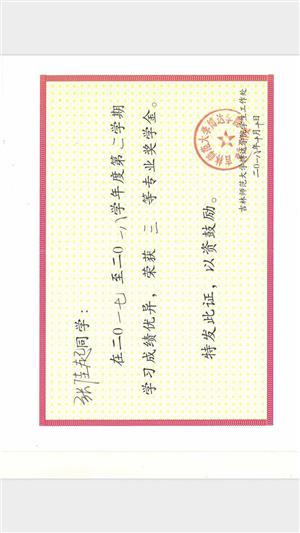 张佳起同学：
在二0一七至二0一八学年度第二学期
学习成绩优异，荣获三等专业奖学金。
特发此证，以资鼓励。
吉林师范大学博达学院学生工作处
二0一八年十月十日